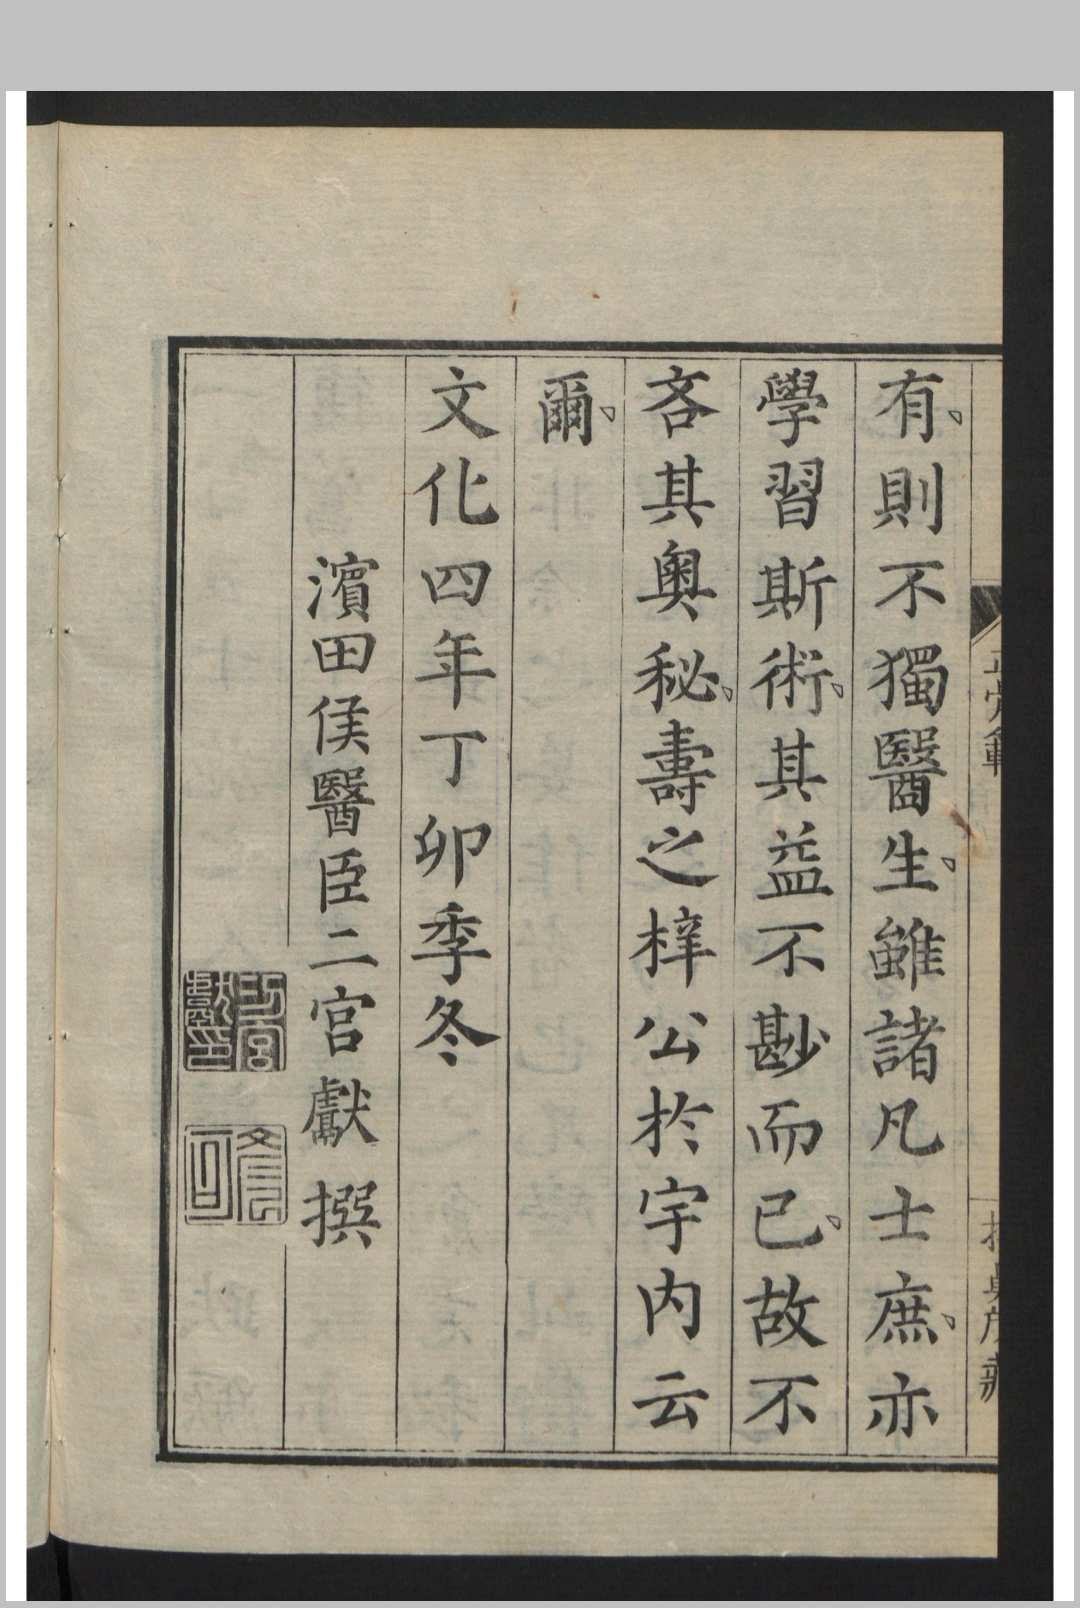 有、則不獨醫生、雖諸凡士庶、亦
學習斯術、其益不尠而已、故不
吝其奧秘、壽之梓公於宇内云
爾、
文化四年丁卯季冬
濱田侯醫臣二宮獻撰